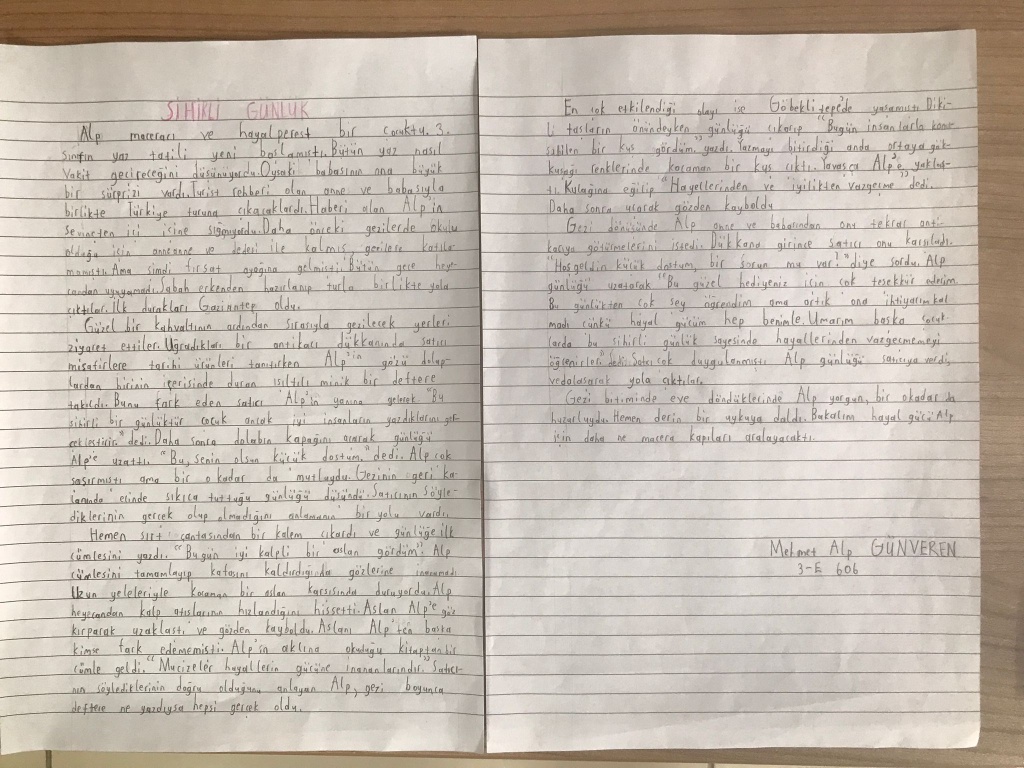 SİHİRLİ GÜNLÜK
Alp maceracı ve hayalperest bir çocuktu. 3.
sınıfın yaz tatili yeni başlamıştı. Bütün yaz nasıl
vakit geçireceğini düşünüyordu. Oysaki babasının ona büyük
bir sürprizi vardı. Turist rehberi olan anne ve babasıyla
birlikte Türkiye turuna çıkacaklardı. Haberi alan Alp'in
sevinçten içi içine sığmıyordu. Daha önceki gezilerde okulu
olduğu için annanne ve dedesi ile kalmış gezilere katıla
mamıştı. Ama şimdi fırsat ayağına gelmişti. Bütün gece heye-
candan uyuyamadı. Sabah erkenden hazırlanıp turla birlikte yola
çıktılar. İlk durakları Gaziantep oldu.
Güzel bir kahvaltının ardından sırasıyla gezilecek yerleri
ziyaret ettiler. Uğradıkları bir antikacı dükkanında satıcı
misafirlere tarihi ürünleri tanıtırken Alp'in gözü dolap-
lardan birinin içerisinde duran ışıltılı minik bir deftere
takıldı. Bunu fark eden satıcı Alp'in yanına gelerek "Bu
sihirli bir günlüktür çocuk ancak iyi insanların yazdıklarını ger-
çekleştirir." dedi. Daha sonra dolabın kapağını açarak günlüğü
Alp'e uzattı. "Bu, senin olsun küçük dostum." dedi. Alp çok
şaşırmıştı ama bir o kadar da mutluydu. Gezinin geri ka-
lanında elinde sıkıca tuttuğu günlüğü düşündü. Satıcının söyle-
diklerinin gerçek olup olmadığını anlamanın bir yolu vardı.
Hemen sırt çantasından bir kalem çıkardı ve günlüğe ilk
cümlesini yazdı. "Bugün iyi kalpli bir aslan gördüm". Alp
cümlesini tamamlayıp kafasını kaldırdığında gözlerine inanamadı
Uzun yeleleriyle kocaman bir aslan karşısında duruyordu. Alp
heyecandan kalp atışlarının hızlandığını hissetti. Aslan Alp'e göz
kırparak uzaklaştı ve gözden kayboldu. Aslanı Alp'ten başka
kimse fark edememişti. Alp'in aklına okuduğu kitaptan bir
cümle geldi. "Mucizeler hayallerin gücüne inananlarındır." Satıcı-
nın söylediklerinin doğru olduğunu anlayan Alp, gezi boyunca
deftere ne yazdıysa hepsi gerçek oldu.
En çok etkilendiği olayı ise Göbeklitepe'de yaşamıştı Diki-
li taşların önündeyken günlüğü çıkarıp "Bugün insanlarla konu
şabilen bir kuş gördüm." yazdı. Yazmayı bitirdiği anda ortaya gök-
kuşağı renklerinde kocaman bir kuş çıktı. Yavaşça Alp'e yaklaş-
tı. Kulağına eğilip "Hayellerinden ve iyilikten vazgeçme" dedi.
Daha sonra uçarak gözden kayboldu
Gezi dönüşünde Alp anne ve babasından onu tekrar anti-
kacıya götürmelerini istedi. Dükkana girince satıcı onu karşıladı.
"Hoşgeldin küçük dostum, bir sorun mu var?" diye sordu. Alp
günlüğü uzatarak "Bu güzel hediyeniz için çok teşekkür ederim.
Bu günlükten çok şey öğrendim ama artık ona ihtiyacım kal
madı çünkü hayal gücüm hep benimle. Umarım başka çocuk-
larda bu sihirli günlük sayesinde hayallerinden vazgeçmemeyi
öğrenirler. dedi. Satıcı çok duygulanmıştı Alp günlüğü satıcıya verdi,
vedalaşarak yola çıktılar.
Gezi bitiminde eve döndüklerinde Alp yorgun, bir okadar da
huzurluydu. Hemen derin bir uykuya daldı. Bakalım hayal gücü Alp
için daha ne macera kapıları aralayacaktı.
Mehmet Alp GÜNVEREN
3-E 606